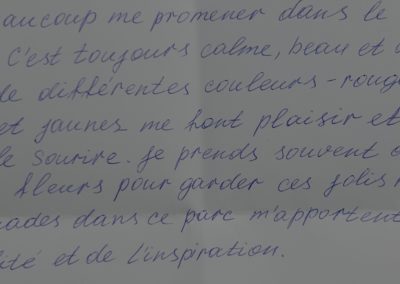 aucoup me promener dans le
C'est toujours calme, beau et
de différentes couleurs - roug
et jaunes me font plaisir et
le sourire. Je prends souvent
fleurs pour garder ces jolis
ades dans ce parc m'apportent
ité et de l'inspiration.